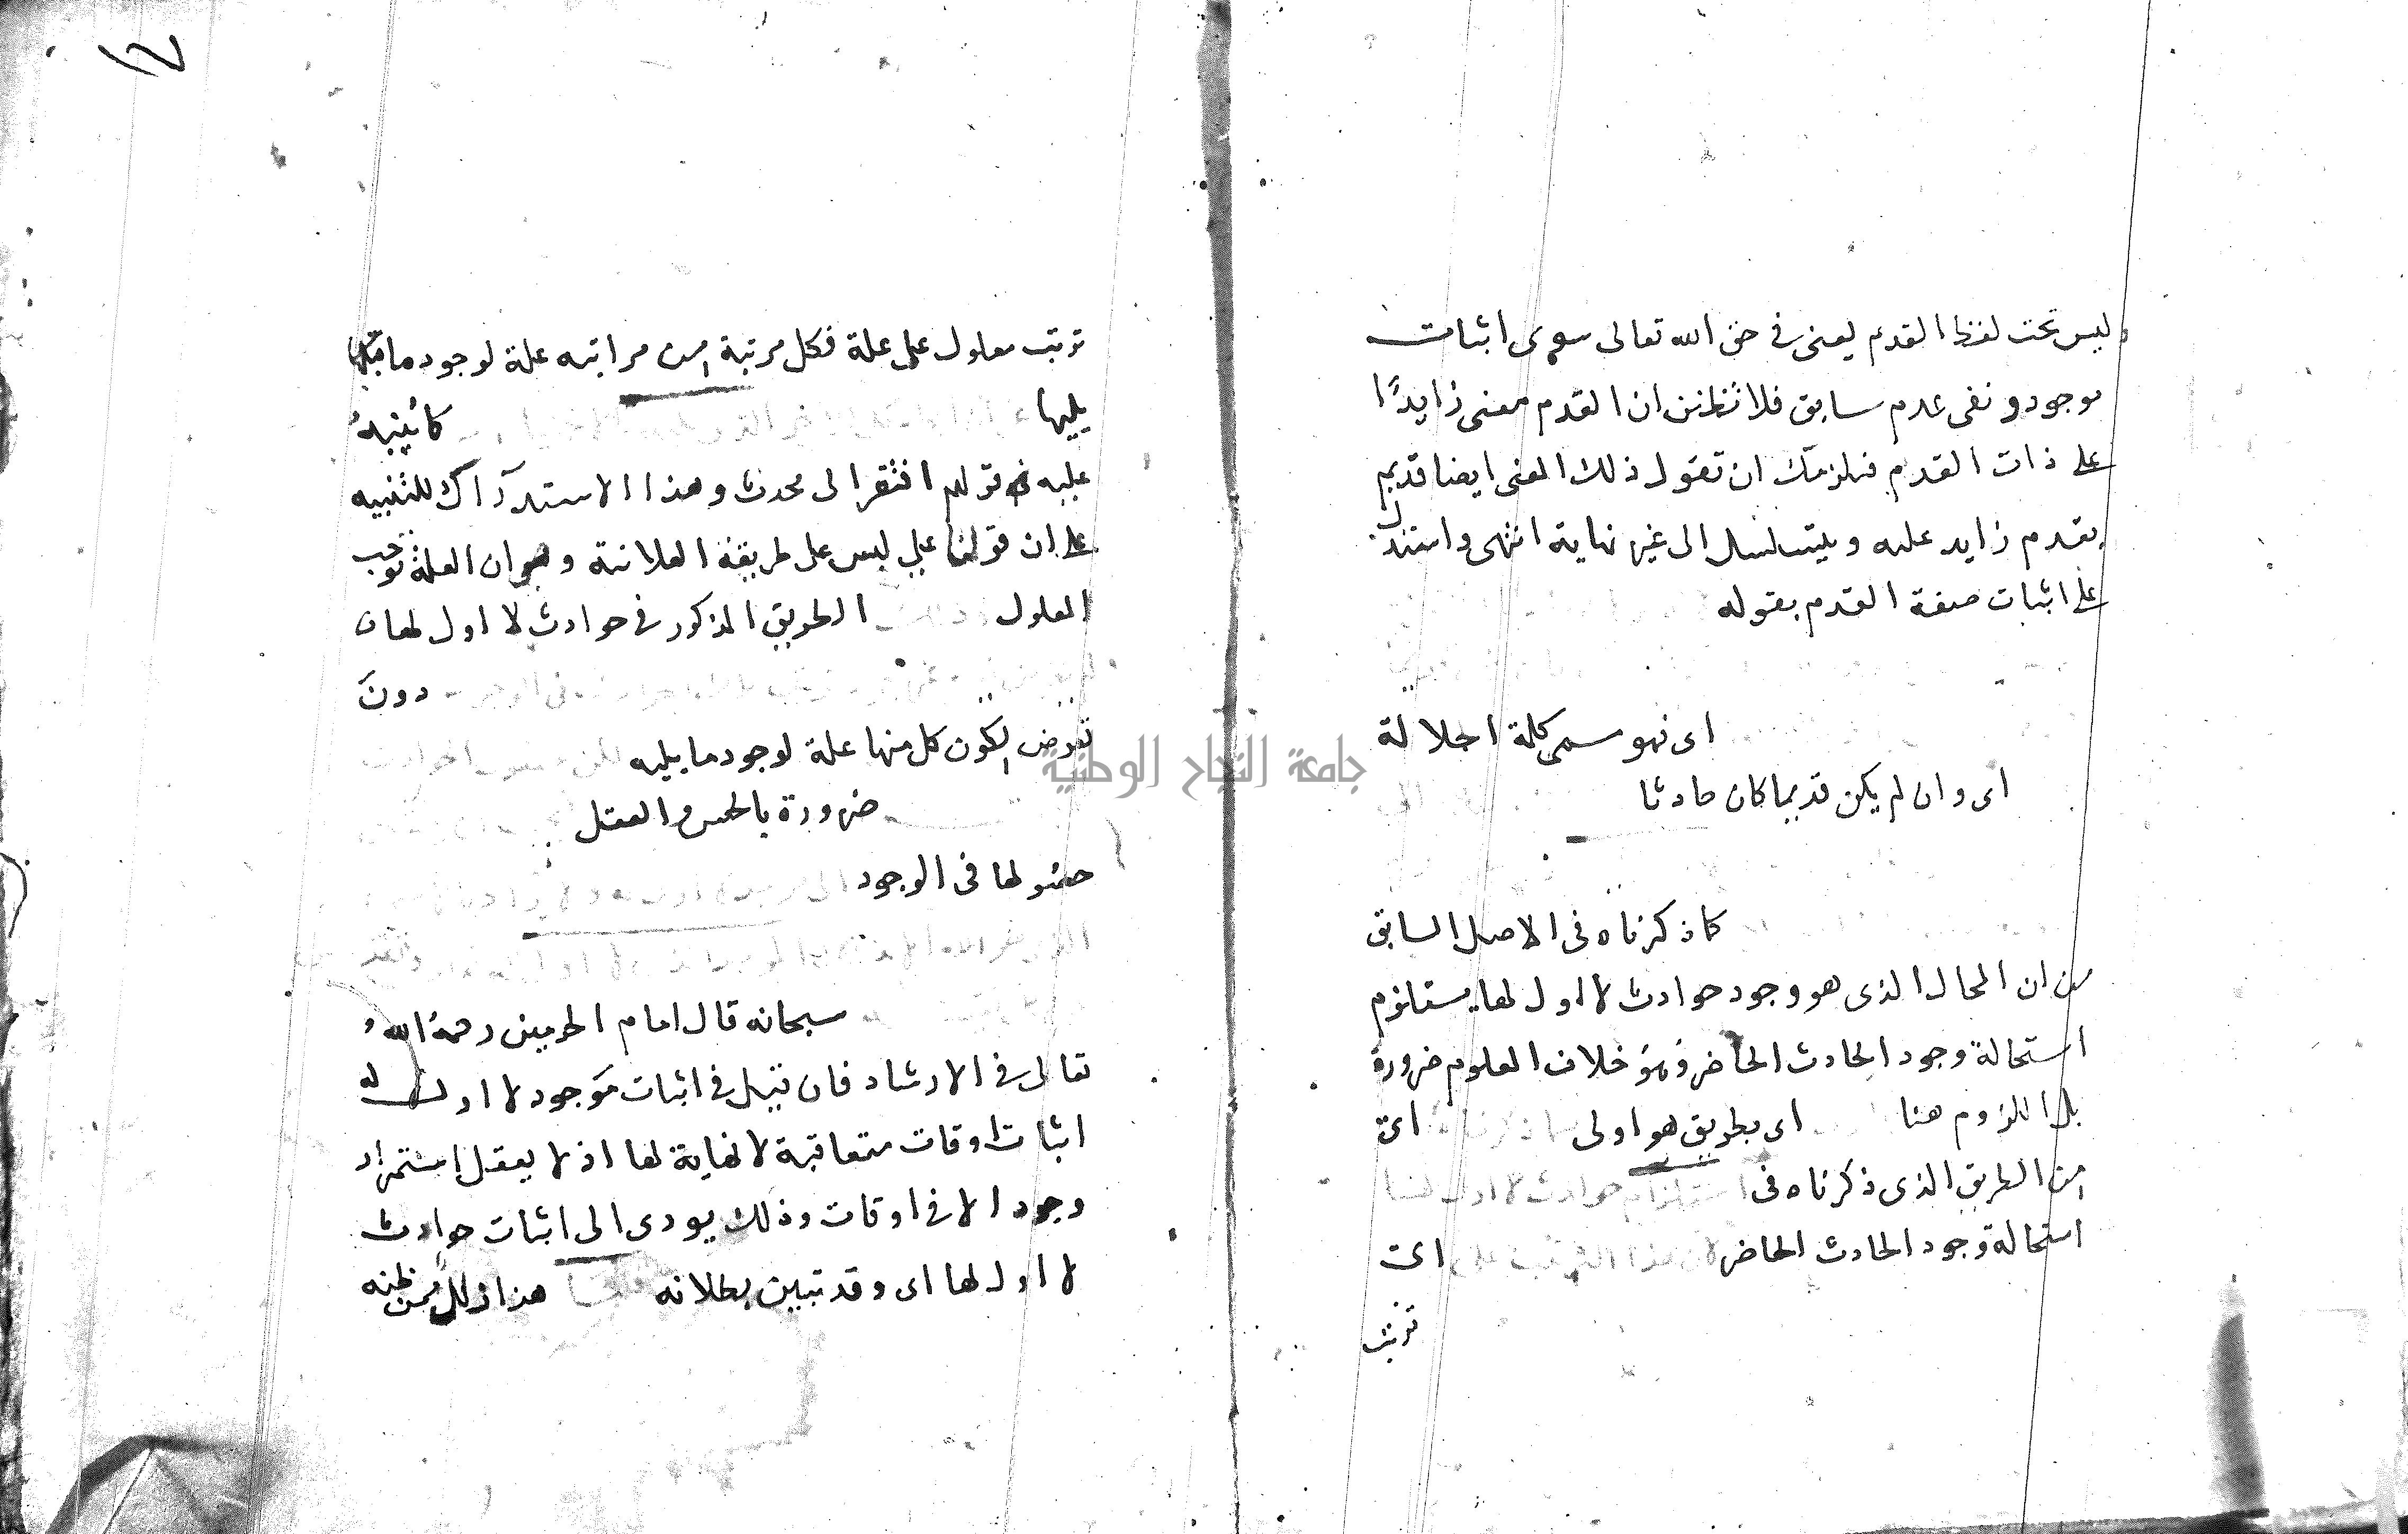 وليس تحت لفظ القدم يعنى فى حق الله تعالى سوى اثبات
موجود و نفى عدم سابق فلا تظنن ان القدم معنى زايدًا
على ذات القدم فيلزمك ان تقول ذلك المعنى ايضا قديم
بقدم زايد عليه ويتسلسل الى غير نهاية انتهى واستدل
على اثبات صفة القدم بقوله
اى فهو سمى كلمة الجلالة
اى وان لم يكن قديما كان حادثا
كما ذكرناه فى الاصل السابق
من ان المحال الذى هو وجود حوادث لا اول لها يستلزم
استحالة وجود الحادث الحاضر وهو خلاف المعلوم ضرورة
بل اللزوم هنا اى بطريق هو اولى اى
من الطريق الذى ذكرناه فى استلزام حوادث لا اول لها
استحالة وجود الحادث الحاضر اى
ترتب
جامعة النجاح الوطنية
١٢
ترتب معلول على علة فكل مرتبة من مراتبه علة لوجود ما قبلها
يليها كما ينبه
عليه فى قولهم افتقر الى محدث وهذا الاستدراك للتنبيه
على ان قولنا على ليس على طريقة الفلاسفة وهو ان العلة توجب
المعلول الطريق المذكور فى حوادث لا اول لها
دون
تعرض لكون كل منها علة لوجود ما يليه
ضرورة بالحس والعقل
حصولها فى الوجود
سبحانه قال امام الحرمين رحمه الله
تعالى فى الارشاد فان قيل فى اثبات موجود لا اول له
اثبات اوقات متعاقبة لا نهاية لها اذ لا يعقل استمرار
وجود الا فى اوقات وذلك يودى الى اثبات حوادث
لا اول لها اى وقد تبين بطلانه قلنا هذا زلل ممن ظنه